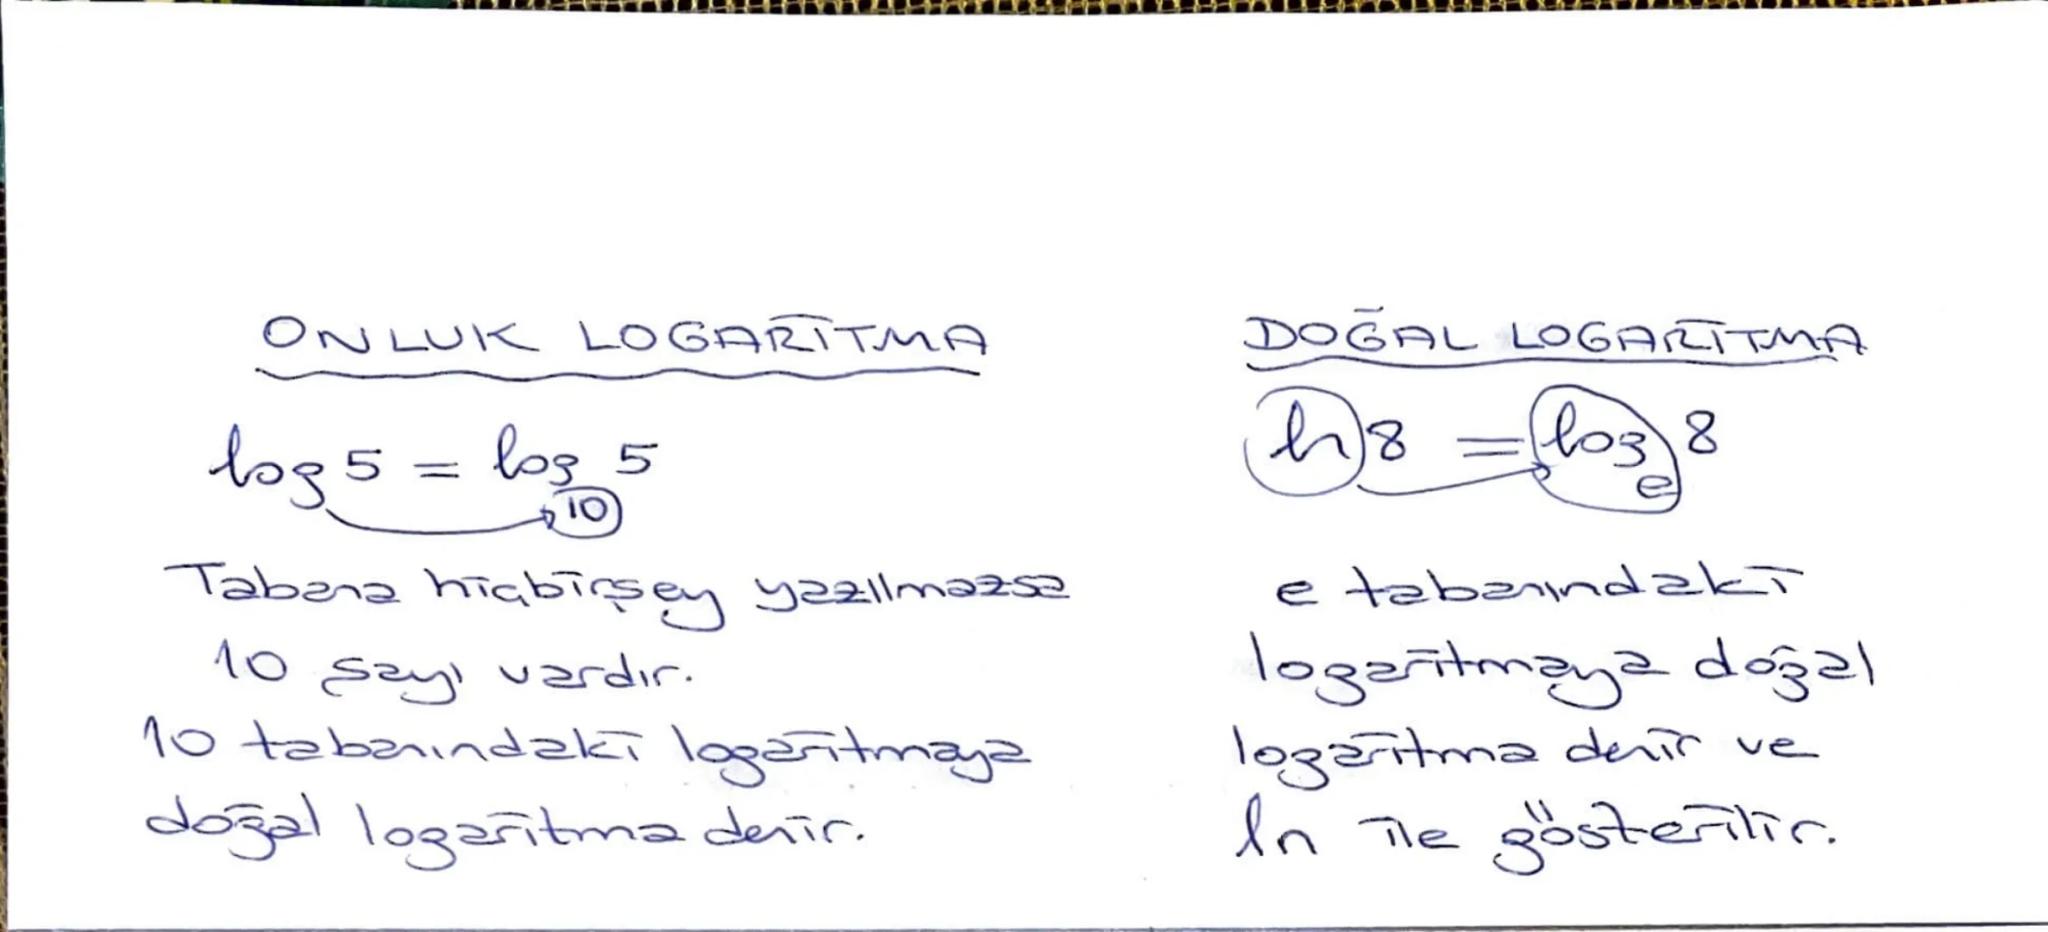 ONLUK LOGARİTMA
log 5 = log₁₀ 5
Tabana hiçbirşey yazılmazsa
10 sayı vardır.
10 tabanındaki logaritmaya
doğal logaritma denir.
DOĞAL LOGARİTMA
ln 8 = logₑ 8
e tabanındaki
logaritmaya doğal
logaritma denir ve
ln ile gösterilir.